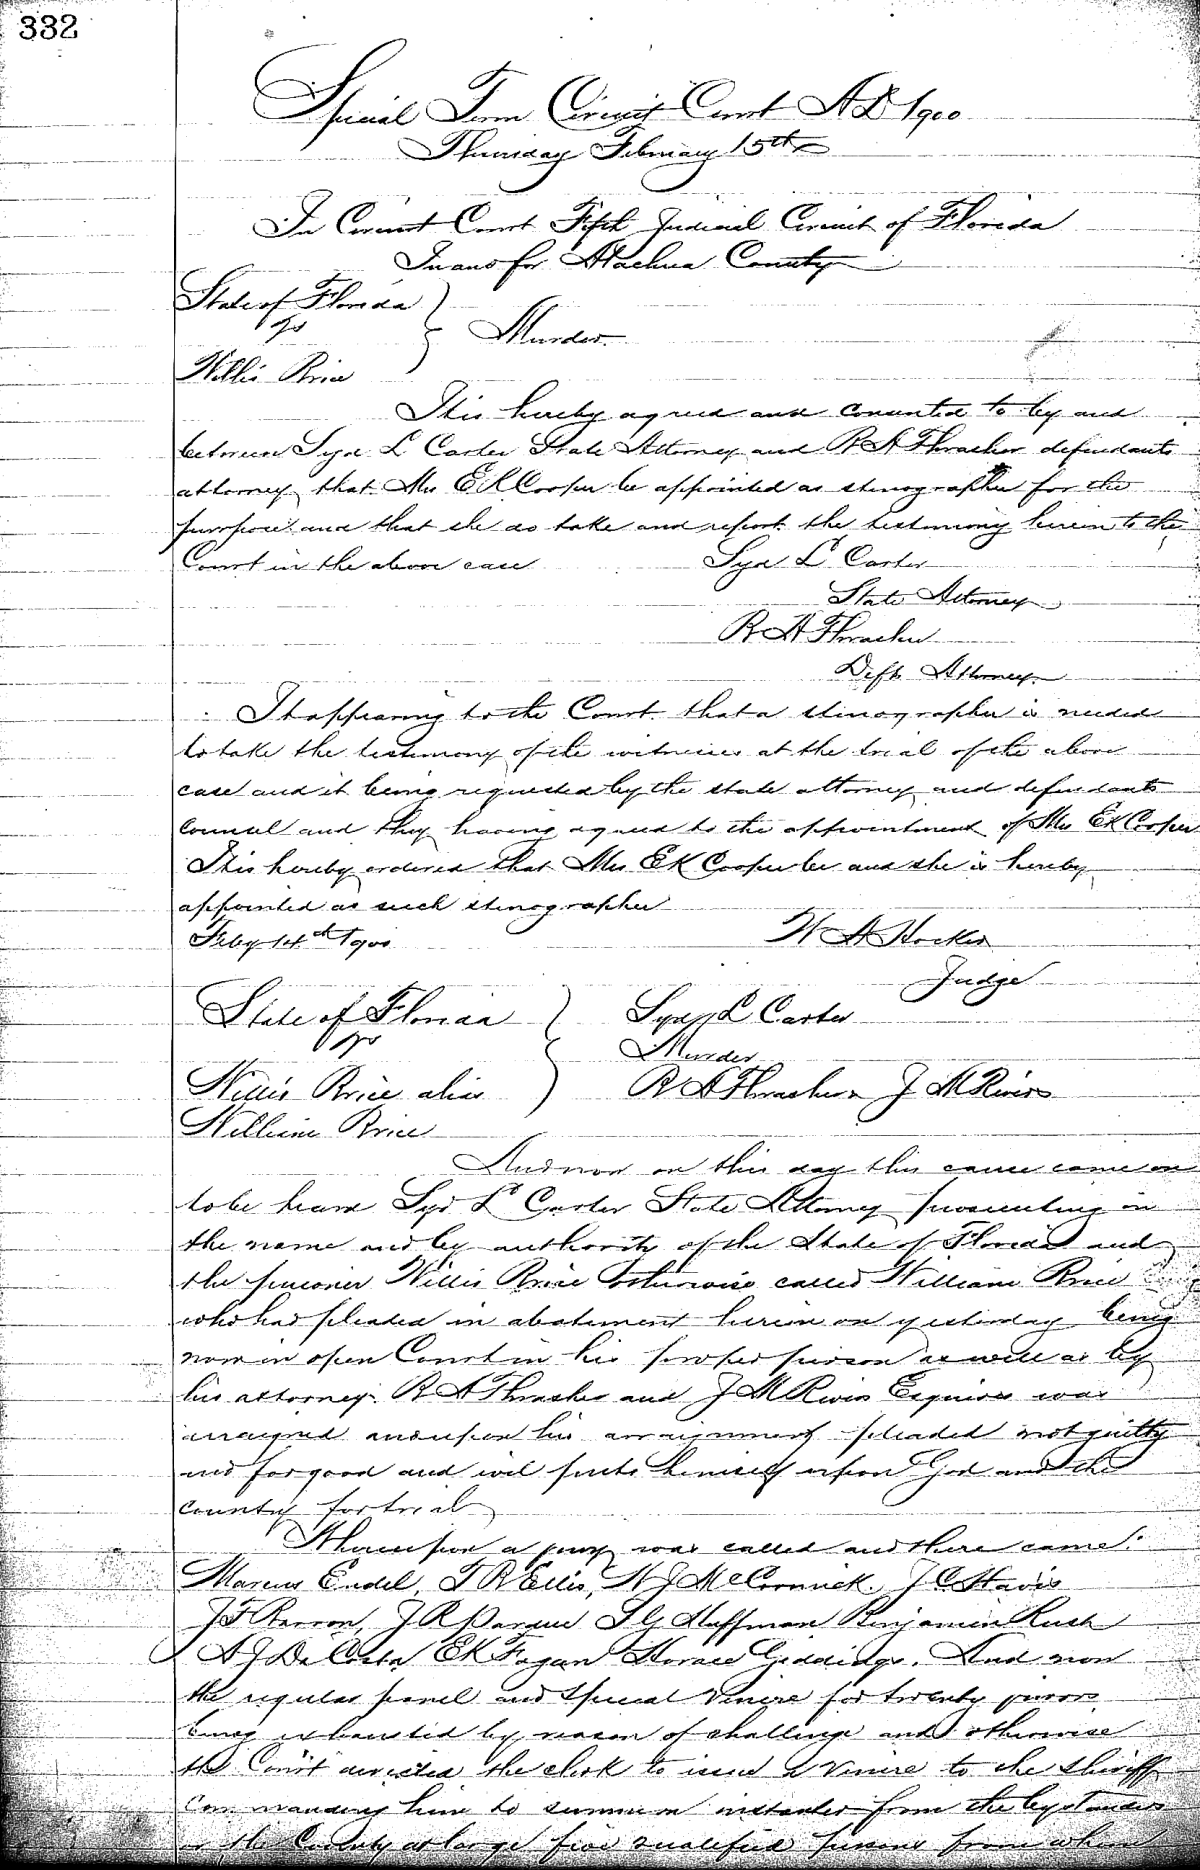 332
Special Term Circuit Court A D 1900
Thursday February 15th
In Circuit Court Fifth Judicial Circuit of Florida
In and for Alachua County
State of Florida
vs
Murder.
Willis Price
It is hereby agreed and consented to by and
between Syd L Carter State Attorney and R A Thrasher defendants
attorney that Mrs E K Cooper be appointed as stenographer for the
purpose and that she do take and report the testimony herein to the
Court in the above case
Syd L Carter
State Attorney
R A Thrasher
Defts Attorney
It appearing to the Court that a stenographer is needed
to take the testimony of the witnesses at the trial of the above
case and it being requested by the state attorney and defendants
Counsel and they having agreed to the appointment of Mrs E K Cooper
It is hereby ordered that Mrs E K Cooper be and she is hereby
appointed as such stenographer
Feby 14th 1900
W A Hocker
Judge
State of Florida
Syd L Carter
vs
Murder
Willis Price alias
R A Thrasher J M Rivers
William Price
And now on this day this cause came on
to be heard Syd L Carter State Attorney prosecuting in
the name and by authority of the State of Florida and
the prisoner Willis Price otherwise called William Price
who had pleaded in abatement herein on yesterday being
now in open Court in his proper person as well as by
his attorney R A Thrasher and J M Rivers Esquires was
arraigned and upon his arraignment pleaded not guilty
and for good and evil puts himself upon God and the
county for trial
Whereupon a jury was called and there came:
Marcus Endel, T R Ellis, W J McCormick, J C
J F Barron, J R T G Huffman Benjamin Rush
A J DaCosta E K Fagan Horace Giddings. And now
the regular panel and special venire for twenty jurors
being exhausted by reason of challenge and otherwise
the Court directed the clerk to issue a venire to the Sheriff
commanding him to summon instanter from the bystanders
or the County at large five qualified persons from whom